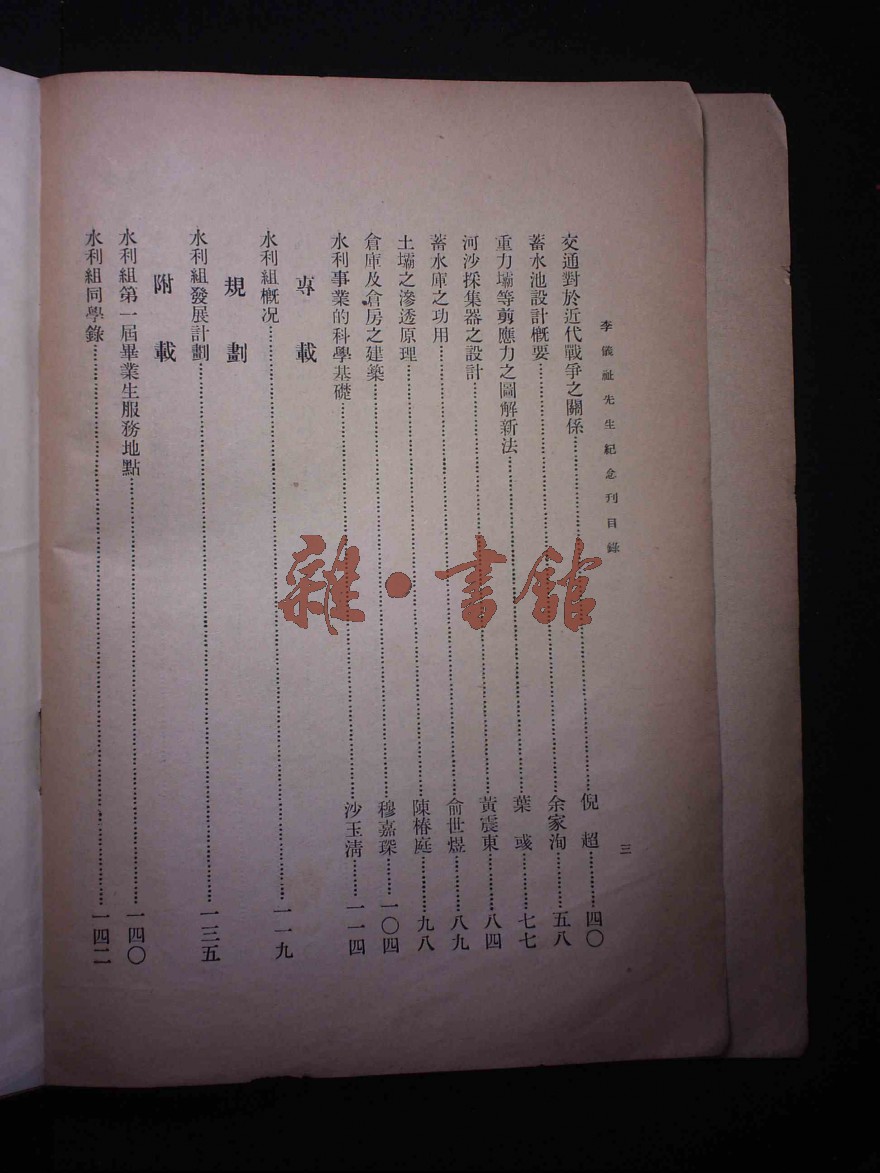 李儀祉先生紀念刊目錄
三
交通對於近代戰爭之關係…………倪超…………四〇
蓄水池設計概要…………余家洵…………五八
重力壩等剪應力之圖解新法…………葉彧…………七七
河沙採集器之設計…………黃震東…………八四
蓄水庫之功用…………俞世煜…………八九
土壩之滲透原理…………陳椿庭…………九八
倉庫及倉房之建築…………穆嘉琛…………一〇四
水利事業的科學基礎…………沙玉清…………一一四
專載
水利組概况…………一一九
規劃
水利組發展計劃…………一三五
附載
水利組第一屆畢業生服務地點…………一四〇
水利組同學錄…………一四二
雜·書館